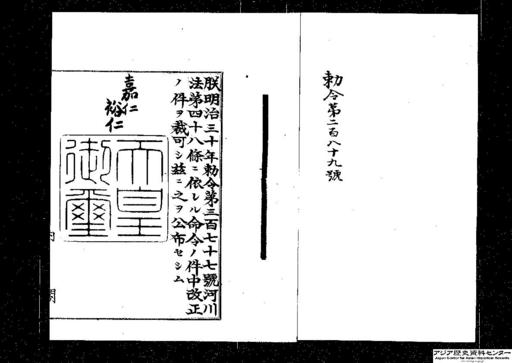 勅令第二百八十九號
朕明治三十年勅令第三百七十七號河川
法第四十八條ニ依レル命令ノ件中改正
ノ件ヲ裁可シ玆ニ之ヲ公布セシム
嘉仁
裕仁
天皇
御璽
内閣
アジア歴史資料センター
Japan Center for Asian Historical Records